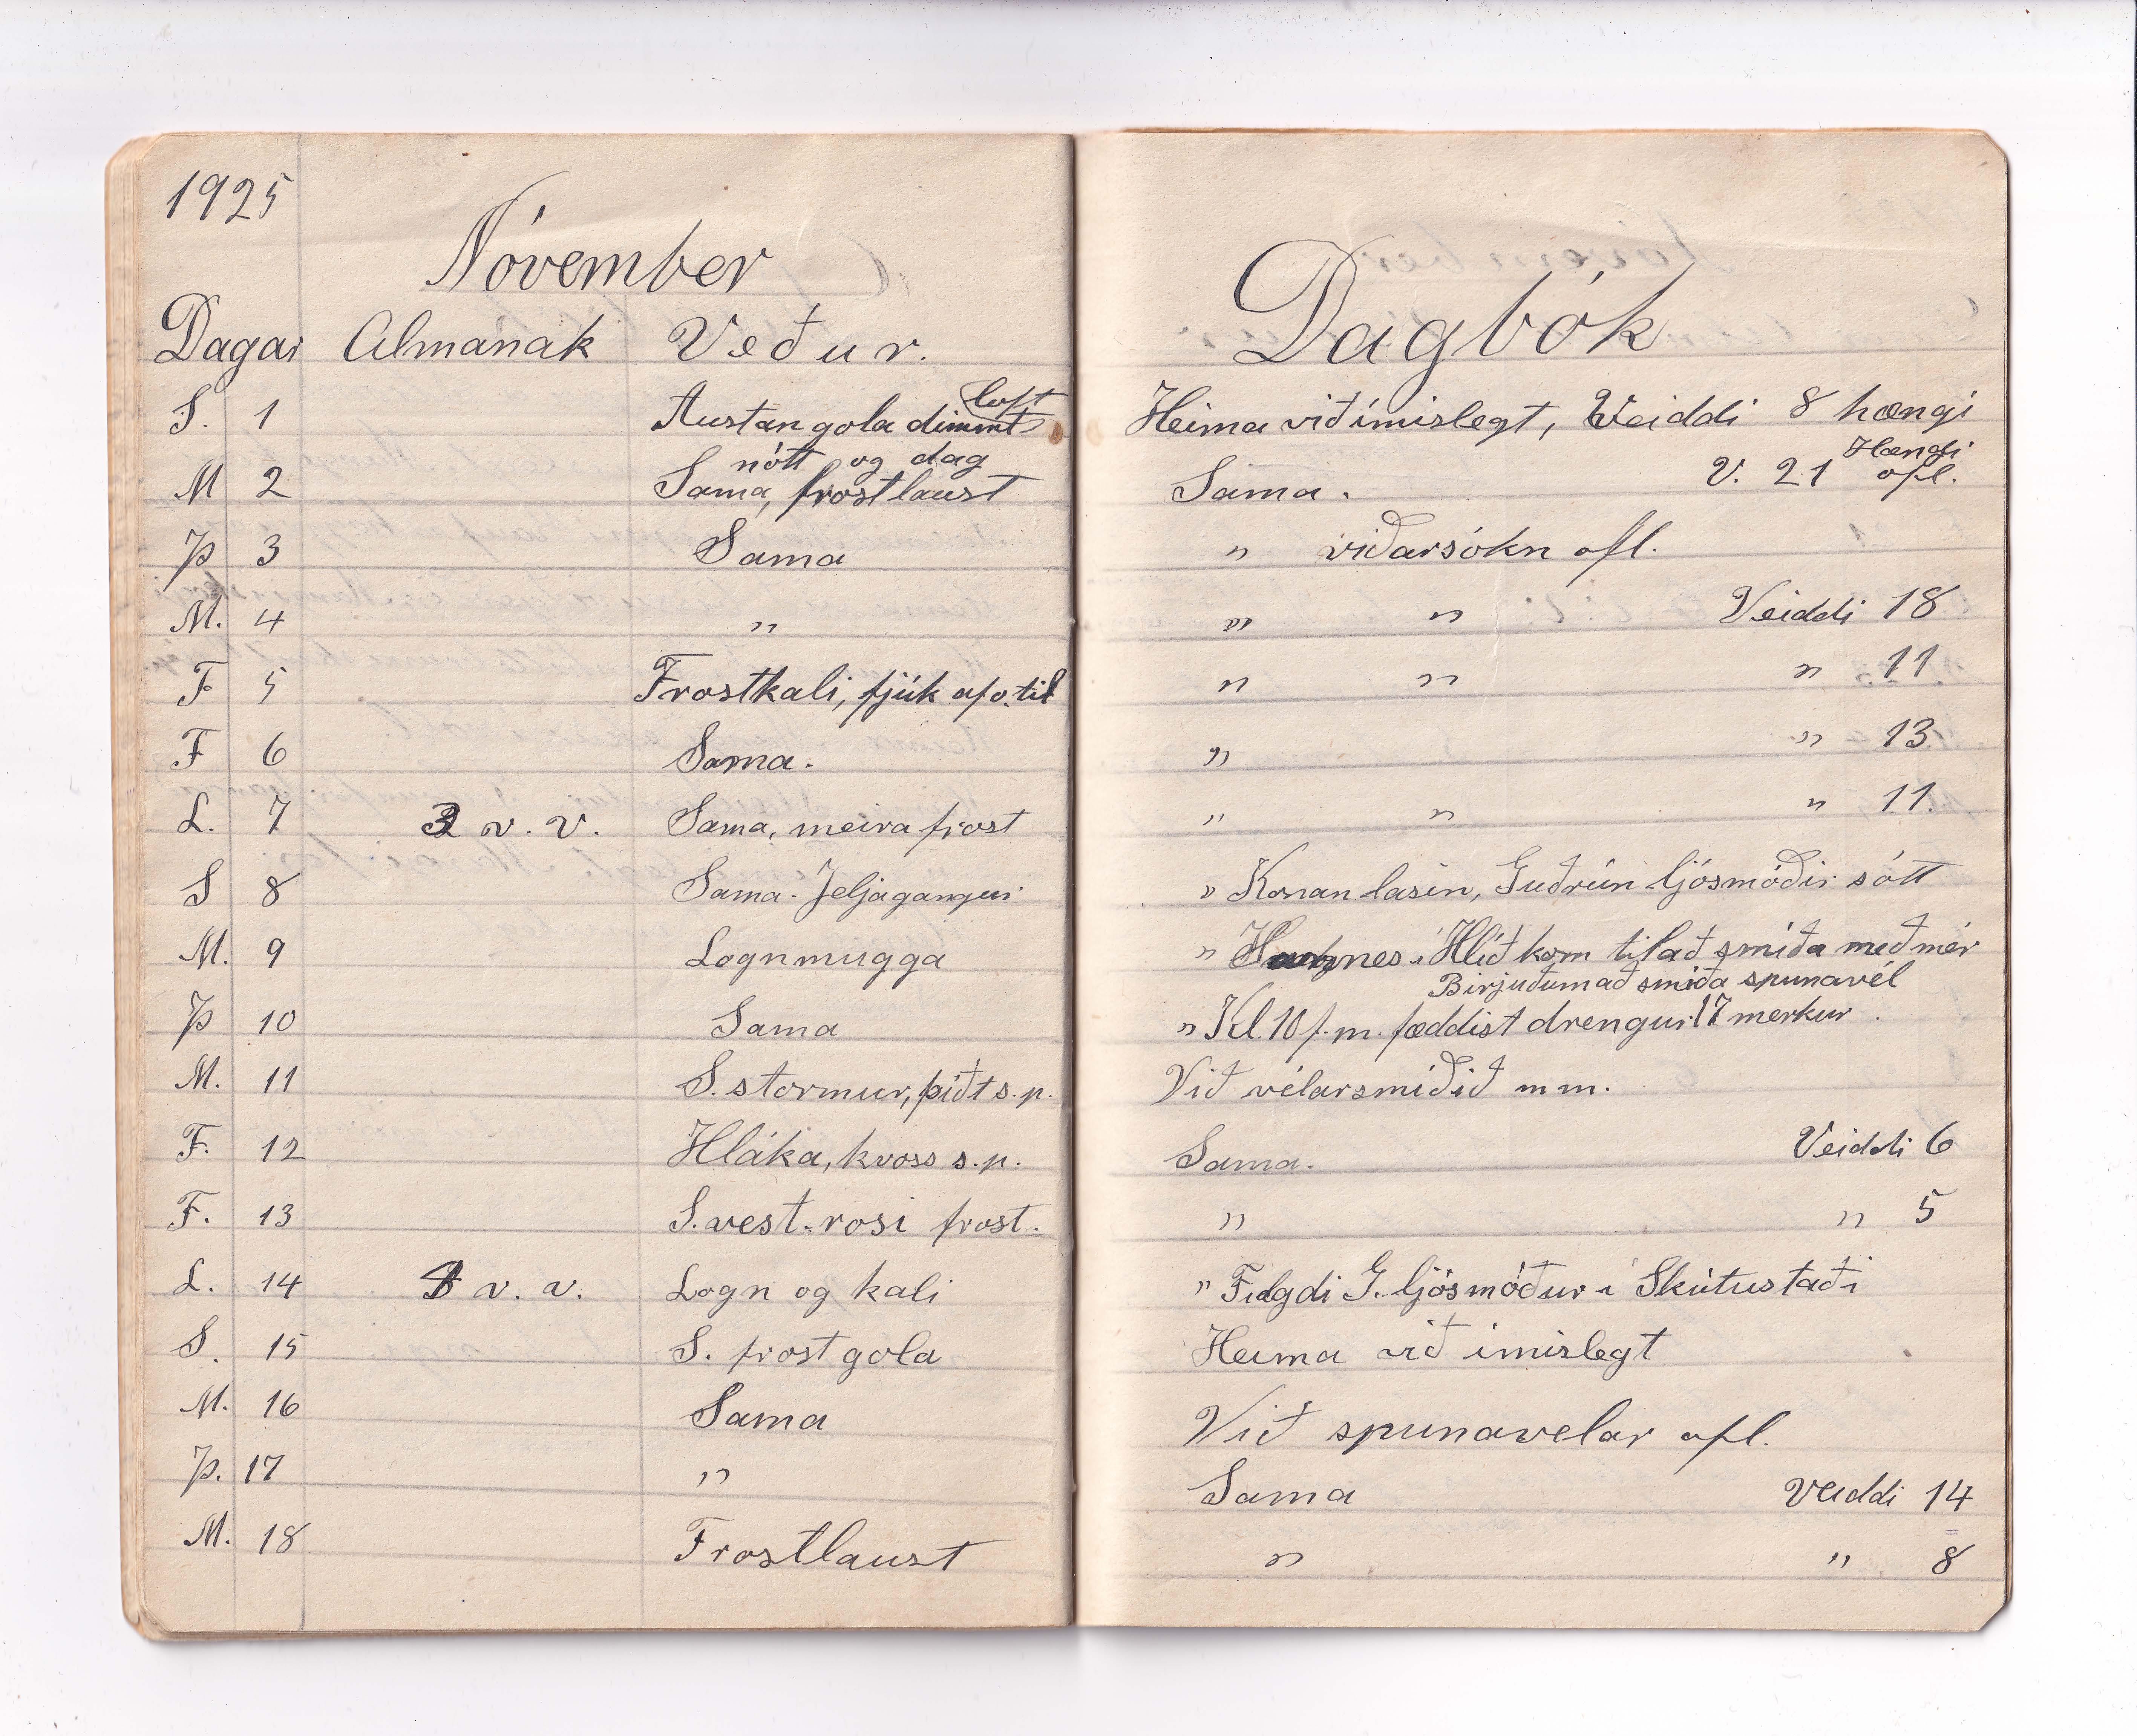 1925
Nóvember
Dagar Almanak Veður.
S. 1 Austan gola dimmt loft
nótt og dag
M 2 Sama, frostlaust
Þ 3 Sama
M. 4 "
F 5 Frostkali, fjúk af o. til
F 6 Sama.
L. 7 3 v. v. Sama, meira frost
S 8 Sama. Jeljagangur
M. 9 Lognmugga
Þ 10 Sama
M. 11 S. stormur, þiðt s. p.
F. 12 Hláka, kvoss s. p.
F. 13 S. vest-rosi frost.
L. 14 4 v. v. Logn og kali
S. 15 S. frost gola
M. 16 Sama
Þ. 17 "
M. 18 Frostlaust
Dagbók
Heima við ímislegt, Veiddi 8 hængi
Hængi
Sama. V. 21 ofl.
" viðarsókn ofl.
" " Veiddi 18
" " " 11
" " 13
" " " 11.
" Konan lasin, Guðrún ljósmóðir sótt
" Hannes í Hlíð kom til að smíða með mér
Birjuðum að smíða spunavél
" Kl. 10 f. m. fæddist drengur 17 merkur
Við vélarsmíðið m m.
Sama. Veiddi 6
" " 5
" Fylgdi G. ljósmóður í Skútustaði
Heima við ímislegt
Við spunavelar ofl.
Sama Veiddi 14
" " 8